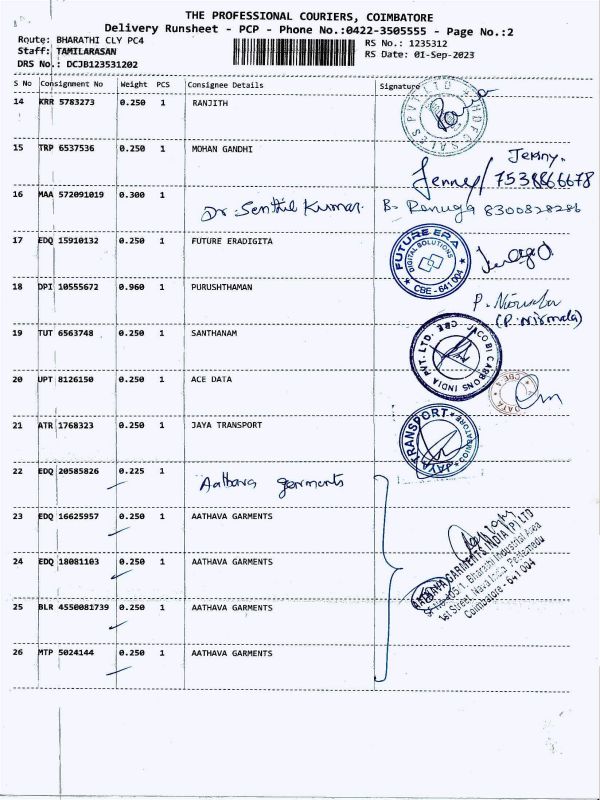 THE PROFESSIONAL COURIERS, COIMBATORE
Delivery Runsheet - PCP - Phone No.:0422-3505555 - Page No.:2
Route: BHARATHI CLY PC4
RS No.: 1235312
Staff: TAMILARASAN
RS Date: 01-Sep-2023
DRS No.: DCJB123531202
S No Consignment No Weight PCS Consignee Details Signature
14 KRR 5783273 0.250 1 RANJITH
PVT LTD HDFC SALES
15 TRP 6537536 0.250 1 MOHAN GANDHI
Jenny.
Jenny/ 7538866678
16 MAA 572091019 0.300 1
Dr. Senthil Kumar. B. Renuga 8300828286
17 EDQ 15910132 0.250 1 FUTURE ERADIGITA
FUTURE ERA DIGITAL SOLUTIONS CBE - 641 004
18 DPI 10555672 0.960 1 PURUSHTHAMAN
P. Nirmala
(P. Nirmala)
19 TUT 6563748 0.250 1 SANTHANAM
JACOBI CARBONS INDIA PVT. LTD. CBE
20 UPT 8126150 0.250 1 ACE DATA
DATA CBE-4
21 ATR 1768323 0.250 1 JAYA TRANSPORT
JAYA TRANSPORT COIMBATORE
22 EDQ 20585826 0.225 1 Aathava garments
23 EDQ 16625957 0.250 1 AATHAVA GARMENTS
24 EDQ 18081103 0.250 1 AATHAVA GARMENTS
AATHAVA GARMENTS INDIA (P) LTD
SF No. 105/1, Bharathi Industrial Area
1st Street, Nava India, Peelamedu
Coimbatore - 641 004
25 BLR 4550081739 0.250 1 AATHAVA GARMENTS
26 MTP 5024144 0.250 1 AATHAVA GARMENTS